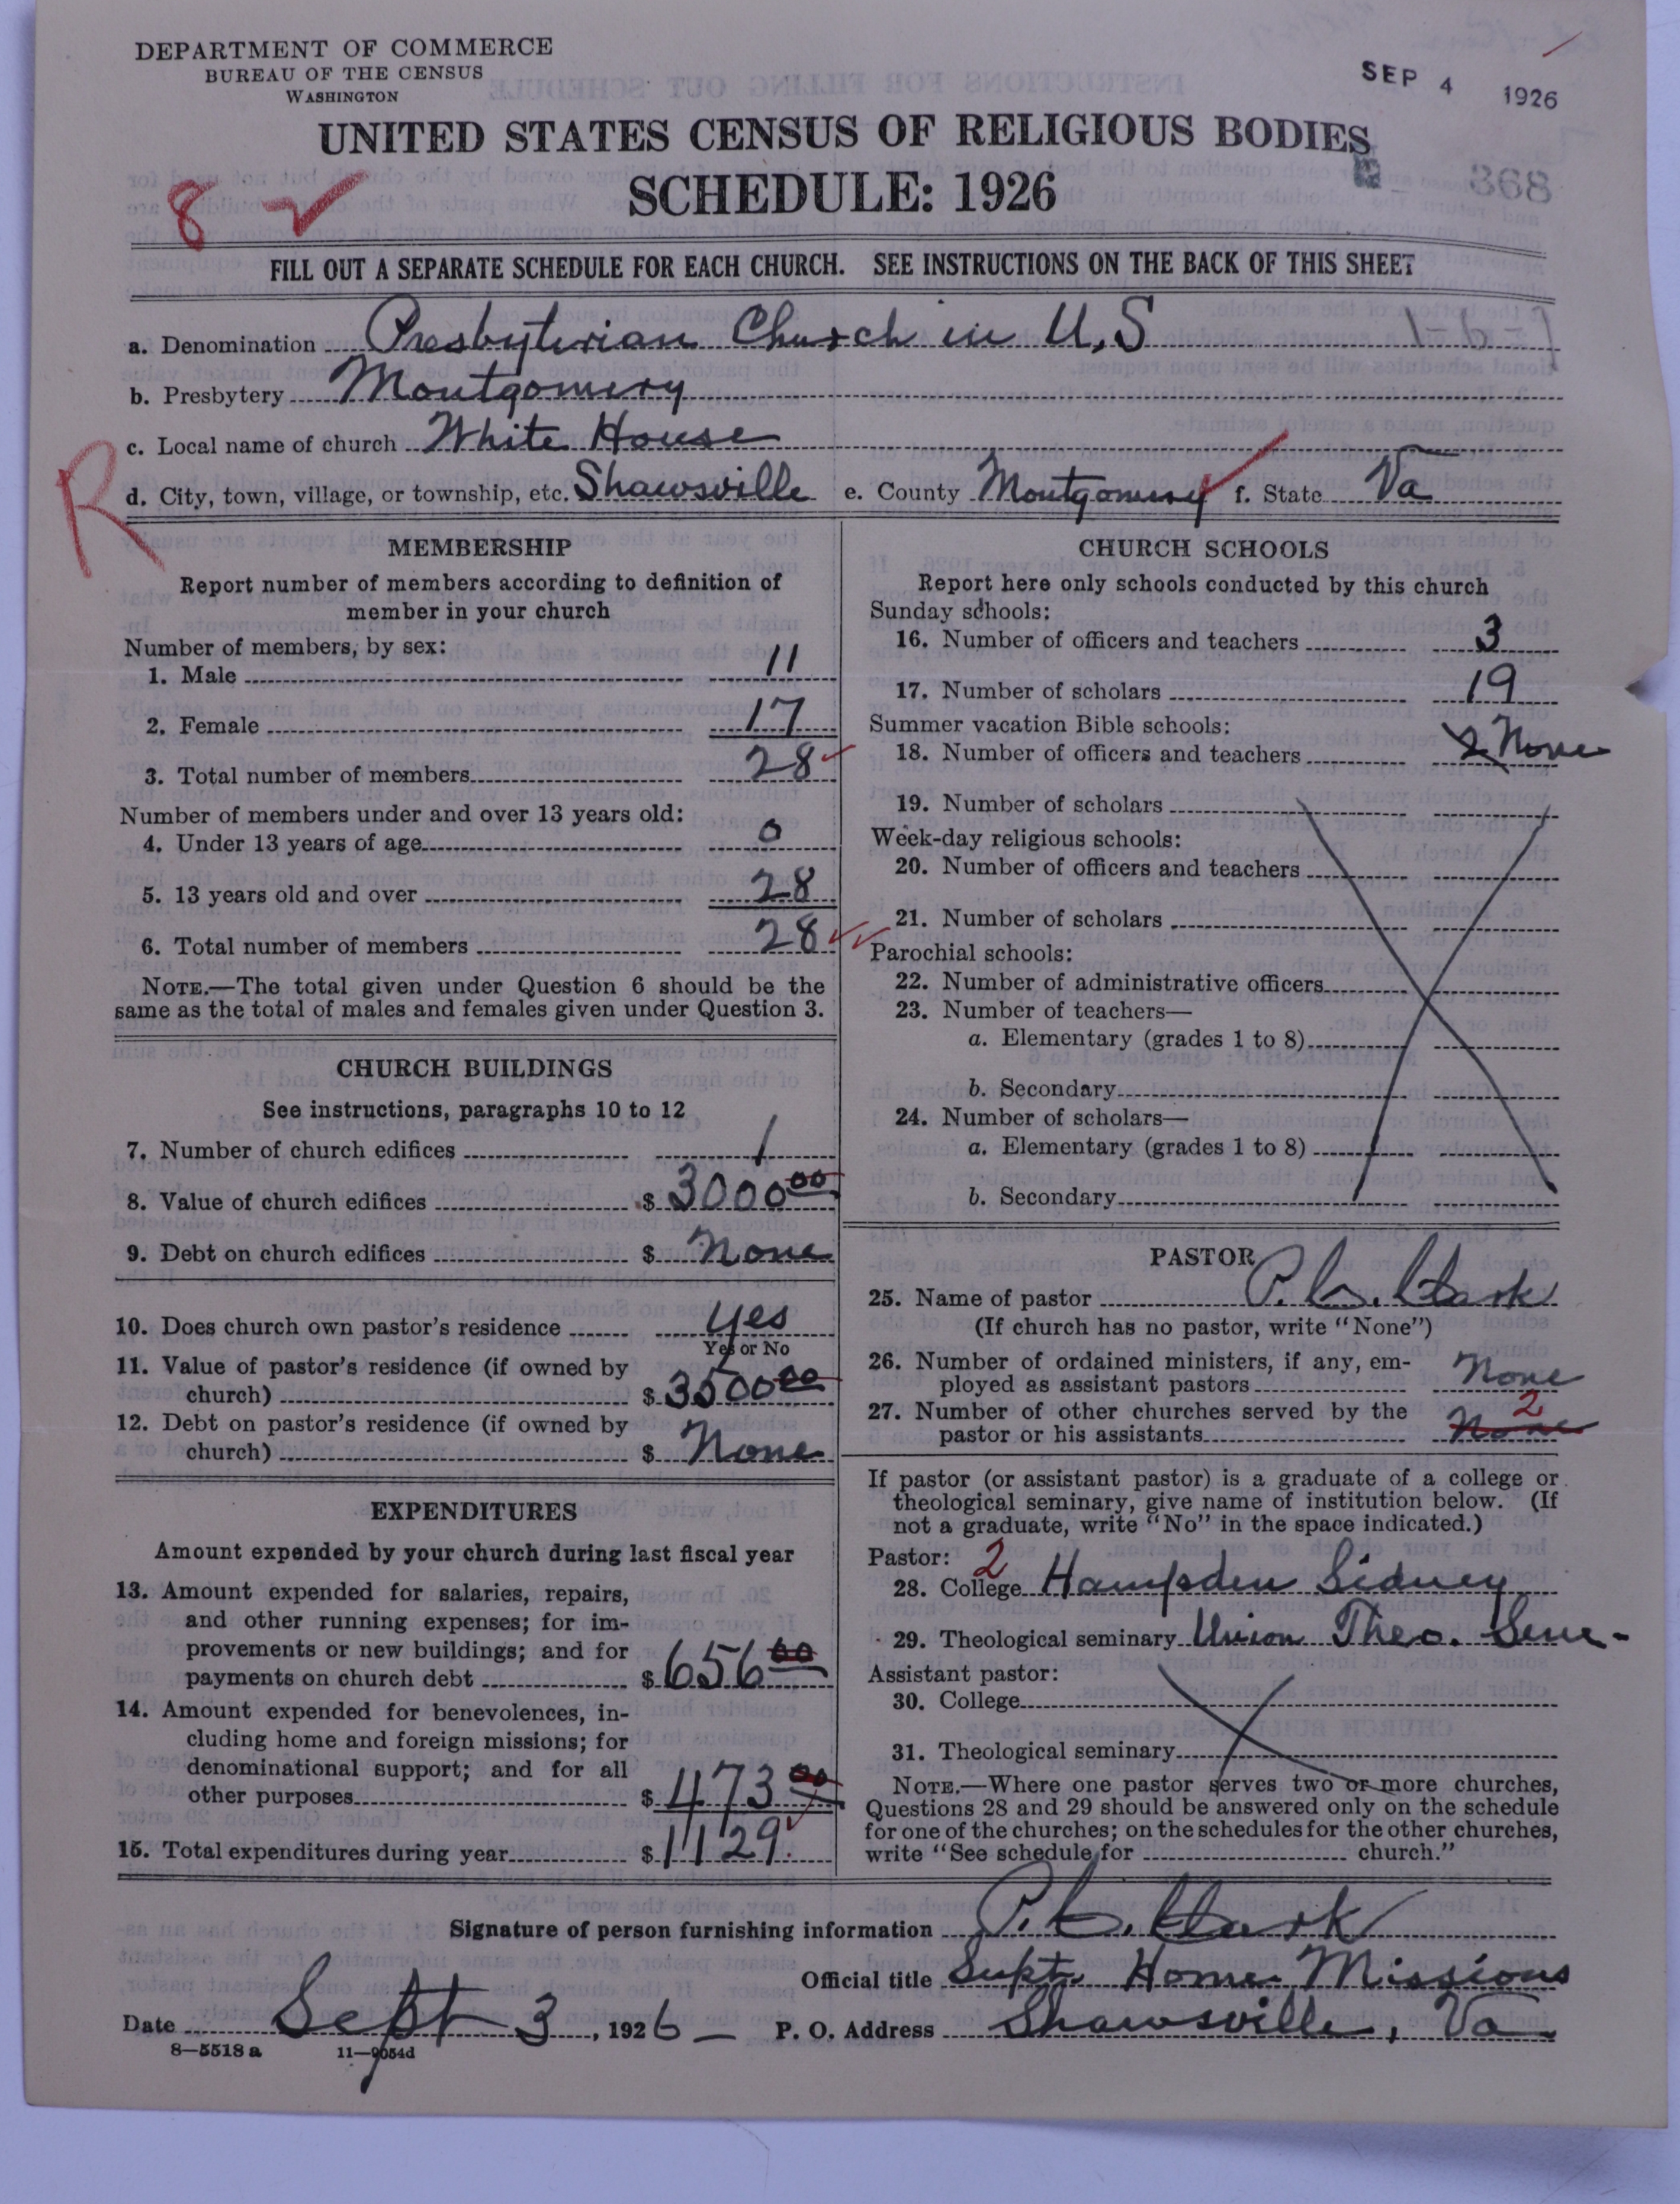 DEPARTMENT OF COMMERCE
BUREAU OF THE CENSUS
WASHINGTON
SEP 4 1926
UNITED STATES CENSUS OF RELIGIOUS BODIES
SCHEDULE: 1926
368
8
FILL OUT A SEPARATE SCHEDULE FOR EACH CHURCH. SEE INSTRUCTIONS ON THE BACK OF THIS SHEET
a. Denomination Presbyterian Church in U.S
b. Presbytery Montgomery
c. Local name of church White House
R
d. City, town, village, or township, etc. Shawsville e. County Montgomery f. State Va
MEMBERSHIP
Report number of members according to definition of
member in your church
Number of members, by sex:
1. Male 11
2. Female 17
3. Total number of members 28
Number of members under and over 13 years old:
4. Under 13 years of age 0
5. 13 years old and over 28
6. Total number of members 28
NOTE.—The total given under Question 6 should be the
same as the total of males and females given under Question 3.
CHURCH BUILDINGS
See instructions, paragraphs 10 to 12
7. Number of church edifices 1
8. Value of church edifices $ 3000 00
9. Debt on church edifices $ None
10. Does church own pastor's residence yes
Yes or No
11. Value of pastor's residence (if owned by
church) $ 3500 00
12. Debt on pastor's residence (if owned by
church) $ None
EXPENDITURES
Amount expended by your church during last fiscal year
13. Amount expended for salaries, repairs,
and other running expenses; for im-
provements or new buildings; and for
payments on church debt $ 656 00
14. Amount expended for benevolences, in-
cluding home and foreign missions; for
denominational support; and for all
other purposes $ 473 00
15. Total expenditures during year $ 1129.
CHURCH SCHOOLS
Report here only schools conducted by this church
Sunday schools:
16. Number of officers and teachers 3
17. Number of scholars 19
Summer vacation Bible schools:
18. Number of officers and teachers 2 None
19. Number of scholars
Week-day religious schools:
20. Number of officers and teachers
21. Number of scholars
Parochial schools:
22. Number of administrative officers
23. Number of teachers—
a. Elementary (grades 1 to 8)
b. Secondary
24. Number of scholars—
a. Elementary (grades 1 to 8)
b. Secondary
PASTOR
25. Name of pastor P. C. Clark
(If church has no pastor, write "None")
26. Number of ordained ministers, if any, em-
ployed as assistant pastors None
27. Number of other churches served by the 2
pastor or his assistants None
If pastor (or assistant pastor) is a graduate of a college or
theological seminary, give name of institution below. (If
not a graduate, write "No" in the space indicated.)
Pastor: 2
28. College Hampden Sidney
29. Theological seminary Union Theo. Sem-
Assistant pastor:
30. College
31. Theological seminary
NOTE.—Where one pastor serves two or more churches,
Questions 28 and 29 should be answered only on the schedule
for one of the churches; on the schedules for the other churches,
write "See schedule for church."
Signature of person furnishing information P. C. Clark
Official title Supt. Home Missions
Date Sept 3, 1926 P. O. Address Shawsville, Va
8—5518 a 11—9054d